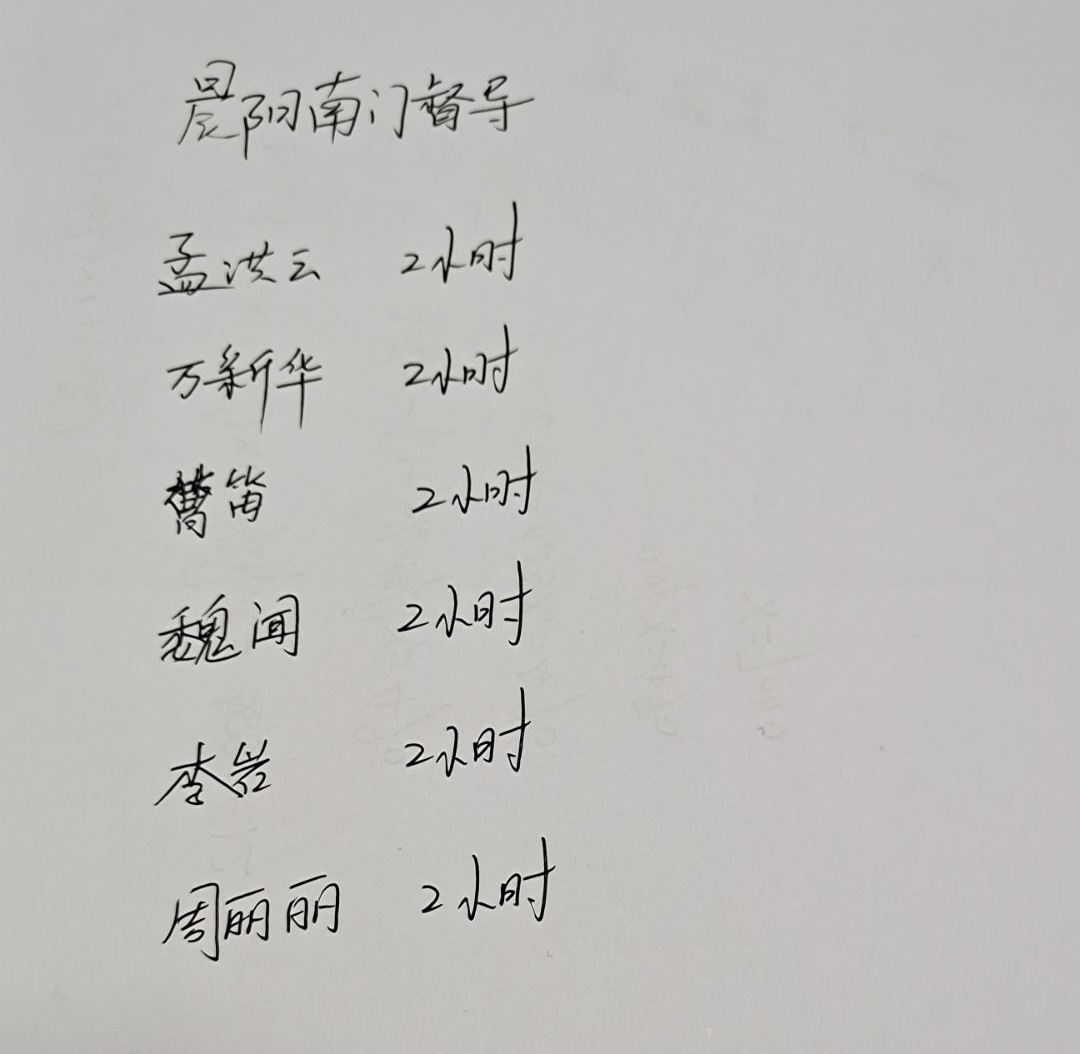 晨阳南门督导
孟洪云 2小时
万新华 2小时
曹笛 2小时
魏闻 2小时
李岩 2小时
周丽丽 2小时